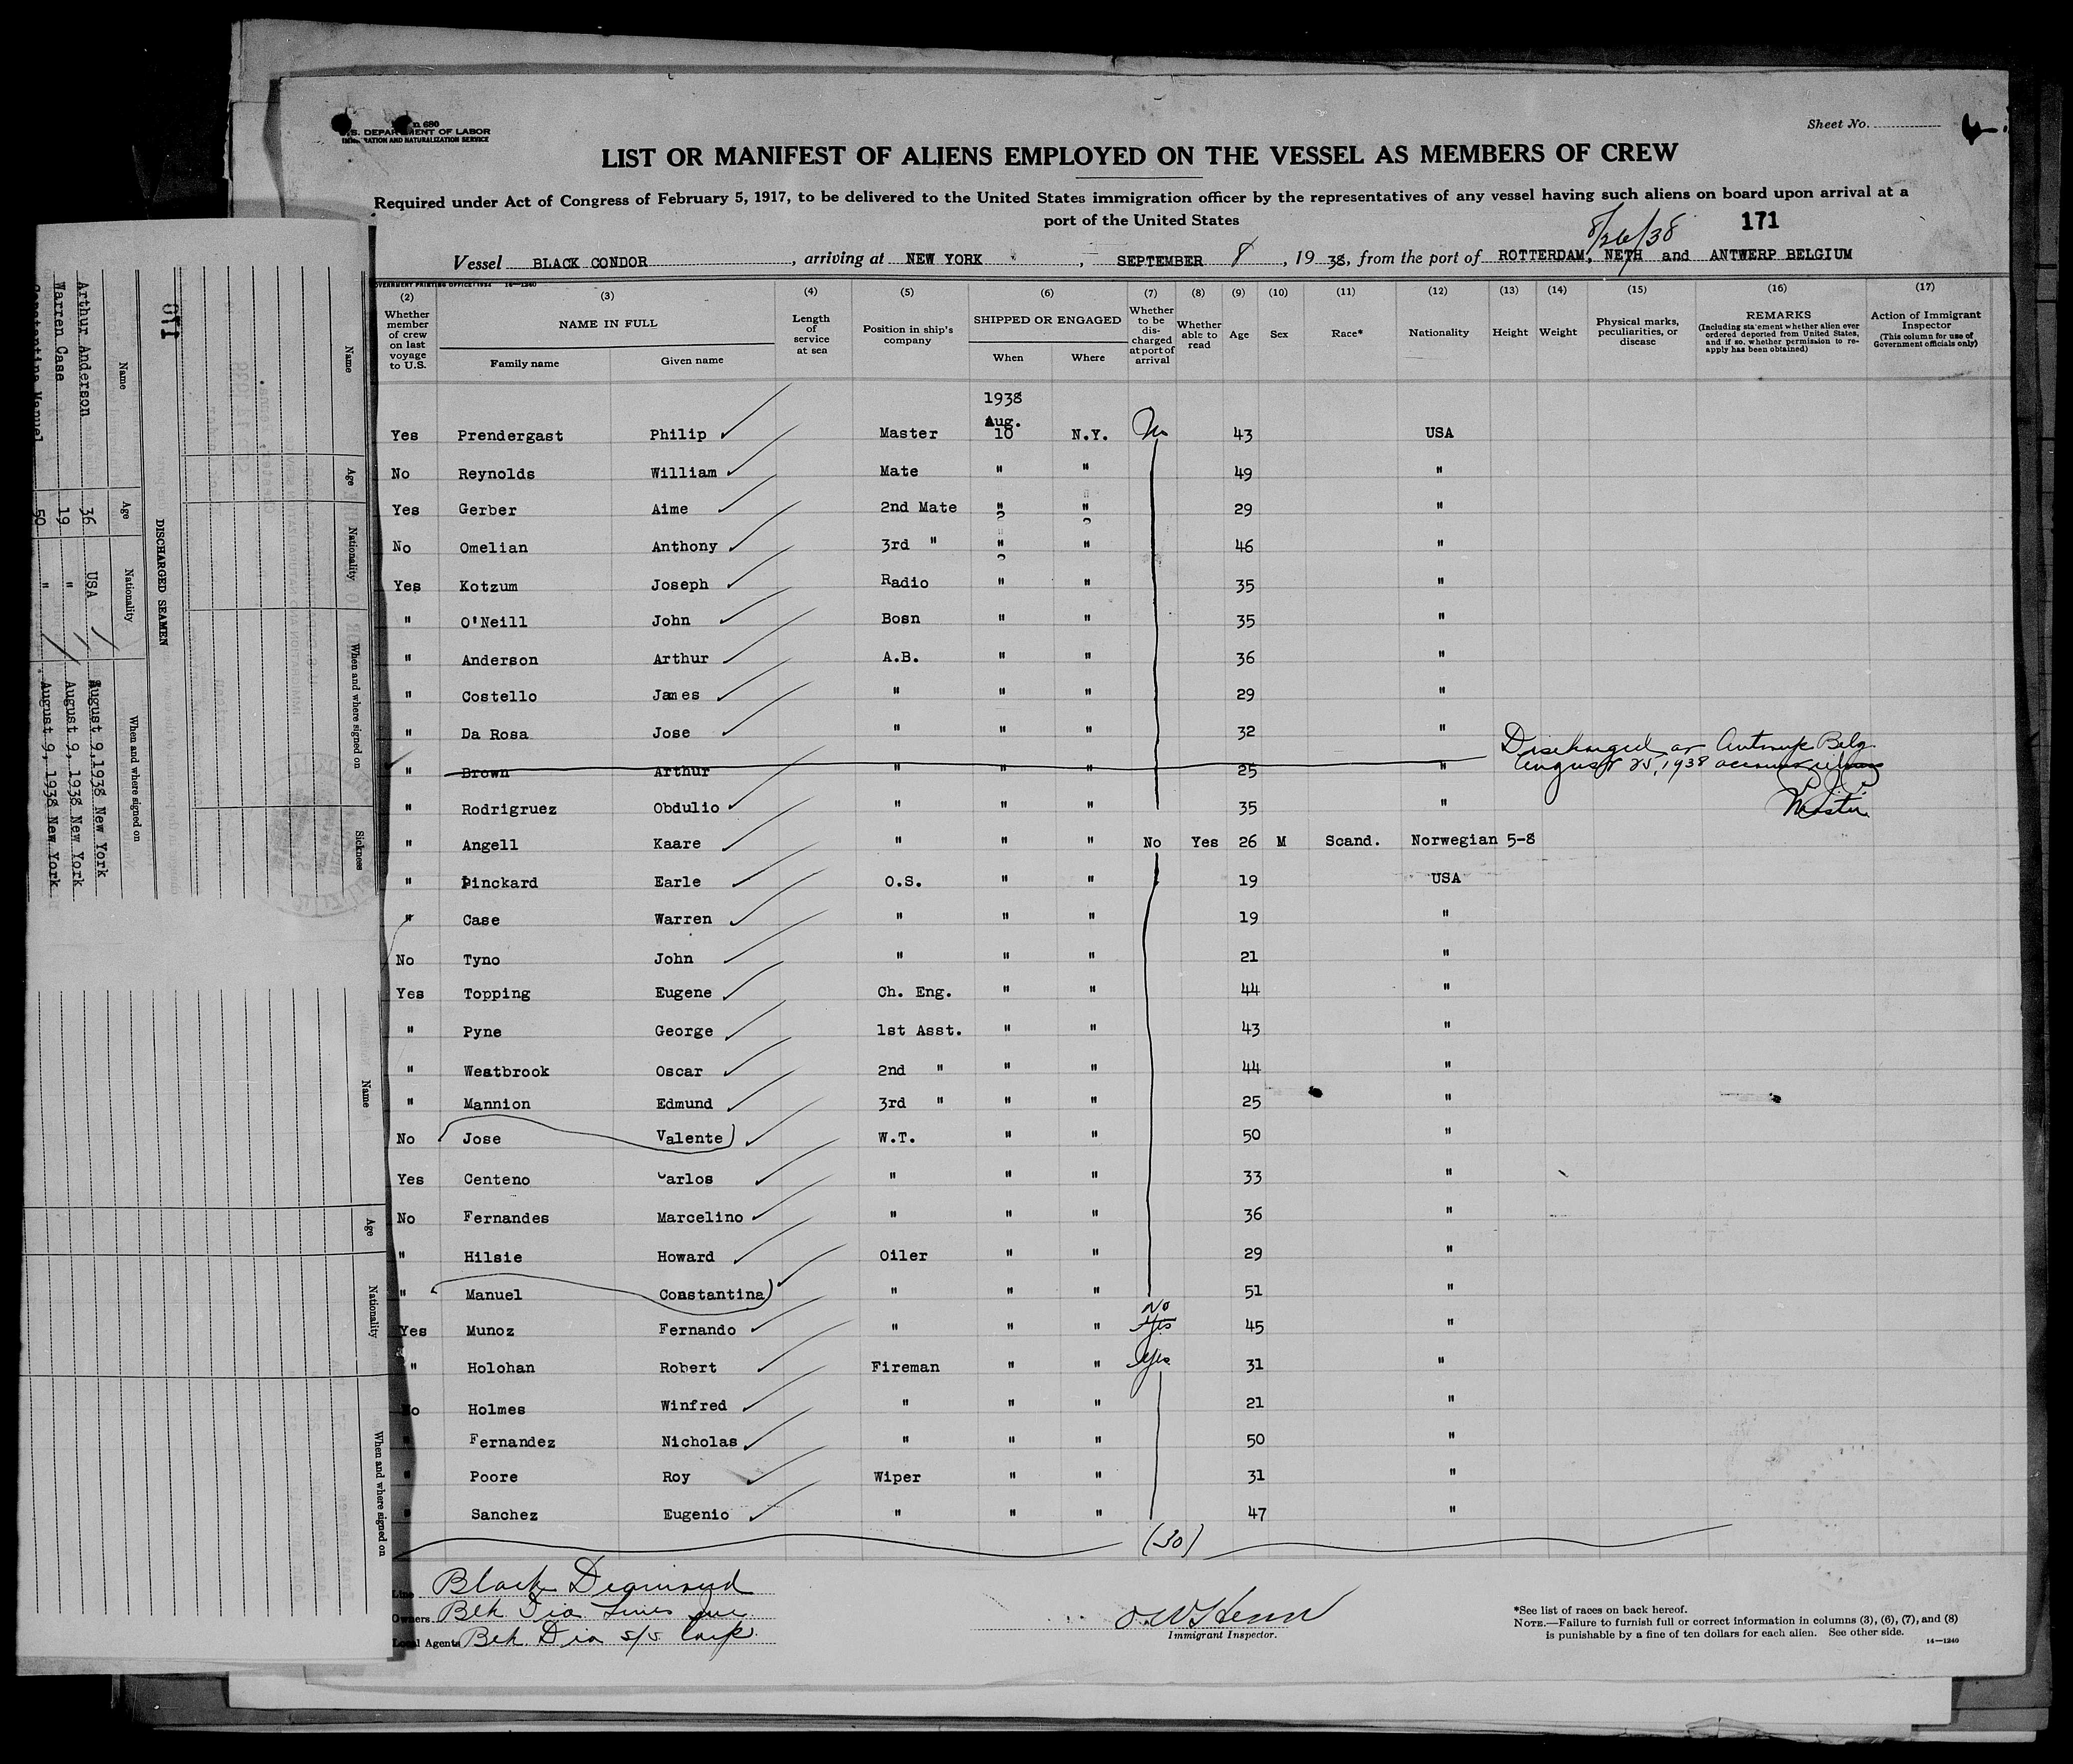 U.S. DEPARTMENT OF LABOR
IMMIGRATION AND NATURALIZATION SERVICE
Sheet No. 4
LIST OR MANIFEST OF ALIENS EMPLOYED ON THE VESSEL AS MEMBERS OF CREW
Required under Act of Congress of February 5, 1917, to be delivered to the United States immigration officer by the representatives of any vessel having such aliens on board upon arrival at a
port of the United States
8/26/38 171
Vessel BLACK CONDOR, arriving at NEW YORK, SEPTEMBER 8, 19 38, from the port of ROTTERDAM, NETH and ANTWERP BELGIUM
(2) (3) (4) (5) (6) (7) (8) (9) (10) (11) (12) (13) (14) (15) (16) (17)
Whether member of crew on last voyage to U.S. NAME IN FULL Family name Given name Length of service at sea Position in ship's company SHIPPED OR ENGAGED When Where Whether to be discharged at port of arrival Whether able to read Age Sex Race* Nationality Height Weight Physical marks, peculiarities, or disease REMARKS (Including statement whether alien ever ordered deported from United States, and if so, whether permission to reapply has been obtained) Action of Immigrant Inspector (This column for use of Government officials only)
1938
Aug.
Yes Prendergast Philip Master 10 N.Y. No 43 USA
No Reynolds William Mate " " 49 "
Yes Gerber Aime 2nd Mate " " 29 "
No Omelian Anthony 3rd " " " 46 "
Yes Kotzum Joseph Radio " " 35 "
" O'Neill John Bosn " " 35 "
" Anderson Arthur A.B. " " 36 "
" Costello James " " " 29 "
" Da Rosa Jose " " " 32 "
" Brown Arthur " " " 25 " Discharged at Antwerp Belg.
August 25, 1938 account
" Rodrigruez Obdulio " " " 35 " Master
" Angell Kaare " " " No Yes 26 M Scand. Norwegian 5-8
" Pinckard Earle O.S. " " 19 USA
" Case Warren " " " 19 "
No Tyno John " " " 21 "
Yes Topping Eugene Ch. Eng. " " 44 "
" Pyne George 1st Asst. " " 43 "
" Weatbrook Oscar 2nd " " " 44 "
" Mannion Edmund 3rd " " " 25 "
No Jose Valente W.T. " " 50 "
Yes Centeno Carlos " " " 33 "
No Fernandes Marcelino " " " 36 "
" Hilsie Howard Oiler " " 29 "
" Manuel Constantina " " " 51 "
Yes Munoz Fernando " " " No Yes 45 "
" Holohan Robert Fireman " " Yes 31 "
No Holmes Winfred " " " 21 "
" Fernandez Nicholas " " " 50 "
" Poore Roy Wiper " " 31 "
" Sanchez Eugenio " " " 47 "
(30)
Line Black Diamond
Owners Blk Dia Lines Inc
Local Agents Blk Dia S/S Corp.
Immigrant Inspector.
*See list of races on back hereof.
NOTE.—Failure to furnish full or correct information in columns (3), (6), (7), and (8)
is punishable by a fine of ten dollars for each alien. See other side.
14—1240
170
DISCHARGED SEAMEN
Name Age Nationality When and where signed on
Arthur Anderson 36 USA August 9, 1938 New York
Warren Case 19 " August 9, 1938 New York
Constantina Manuel 50 " August 9, 1938 New York
Name Age Nationality When and where signed on Sickness
Name Age Nationality When and where signed on